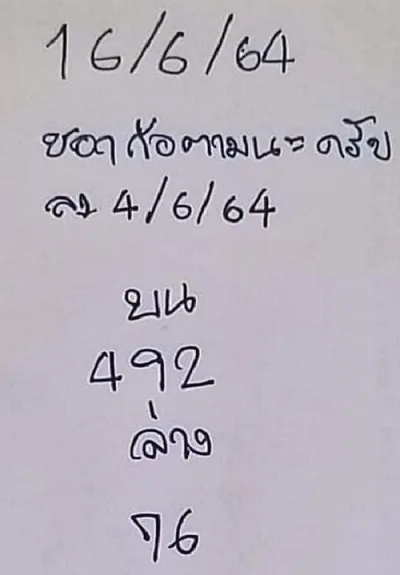 16/6/64
ก้อตามนะ ครับ
ลง 4/6/64
บน
492
ล่าง
76